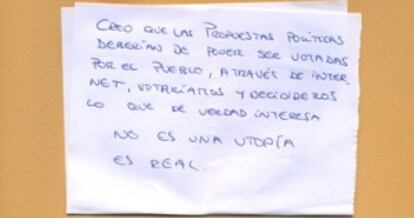 CREO QUE LAS PROPUESTAS POLÍTICAS
DEBERÍAN DE PODER SER VOTADAS
POR EL PUEBLO, A TRAVÉS DE INTER-
NET, VOTARÍAMOS Y DECIDIREMOS
LO QUE DE VERDAD INTERESA
NO ES UNA UTOPÍA
ES REAL.